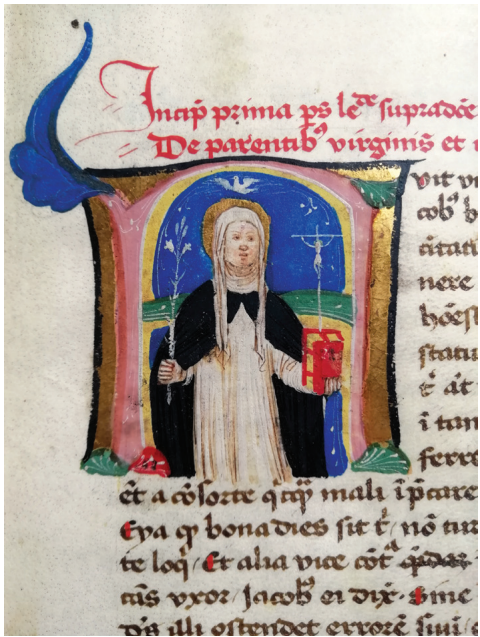 Incip̄ prima ps leᵈᵉ supradc̄e
De parentib⁹ virginis̄ et
vit vi
cob⁹ h
nere
hōest
statu
t̄ āt
ī tan
ferre
et a cōsorte q̄cq̄ mali īp̄care
Eya ꝙ bona dies sit t̄ / nō tur
te loq̄ / Et alia vice cōtᵃ
vxor / Jacob⁹ ei dix̄. Sine
d̄s illi ostendet errorē suū /